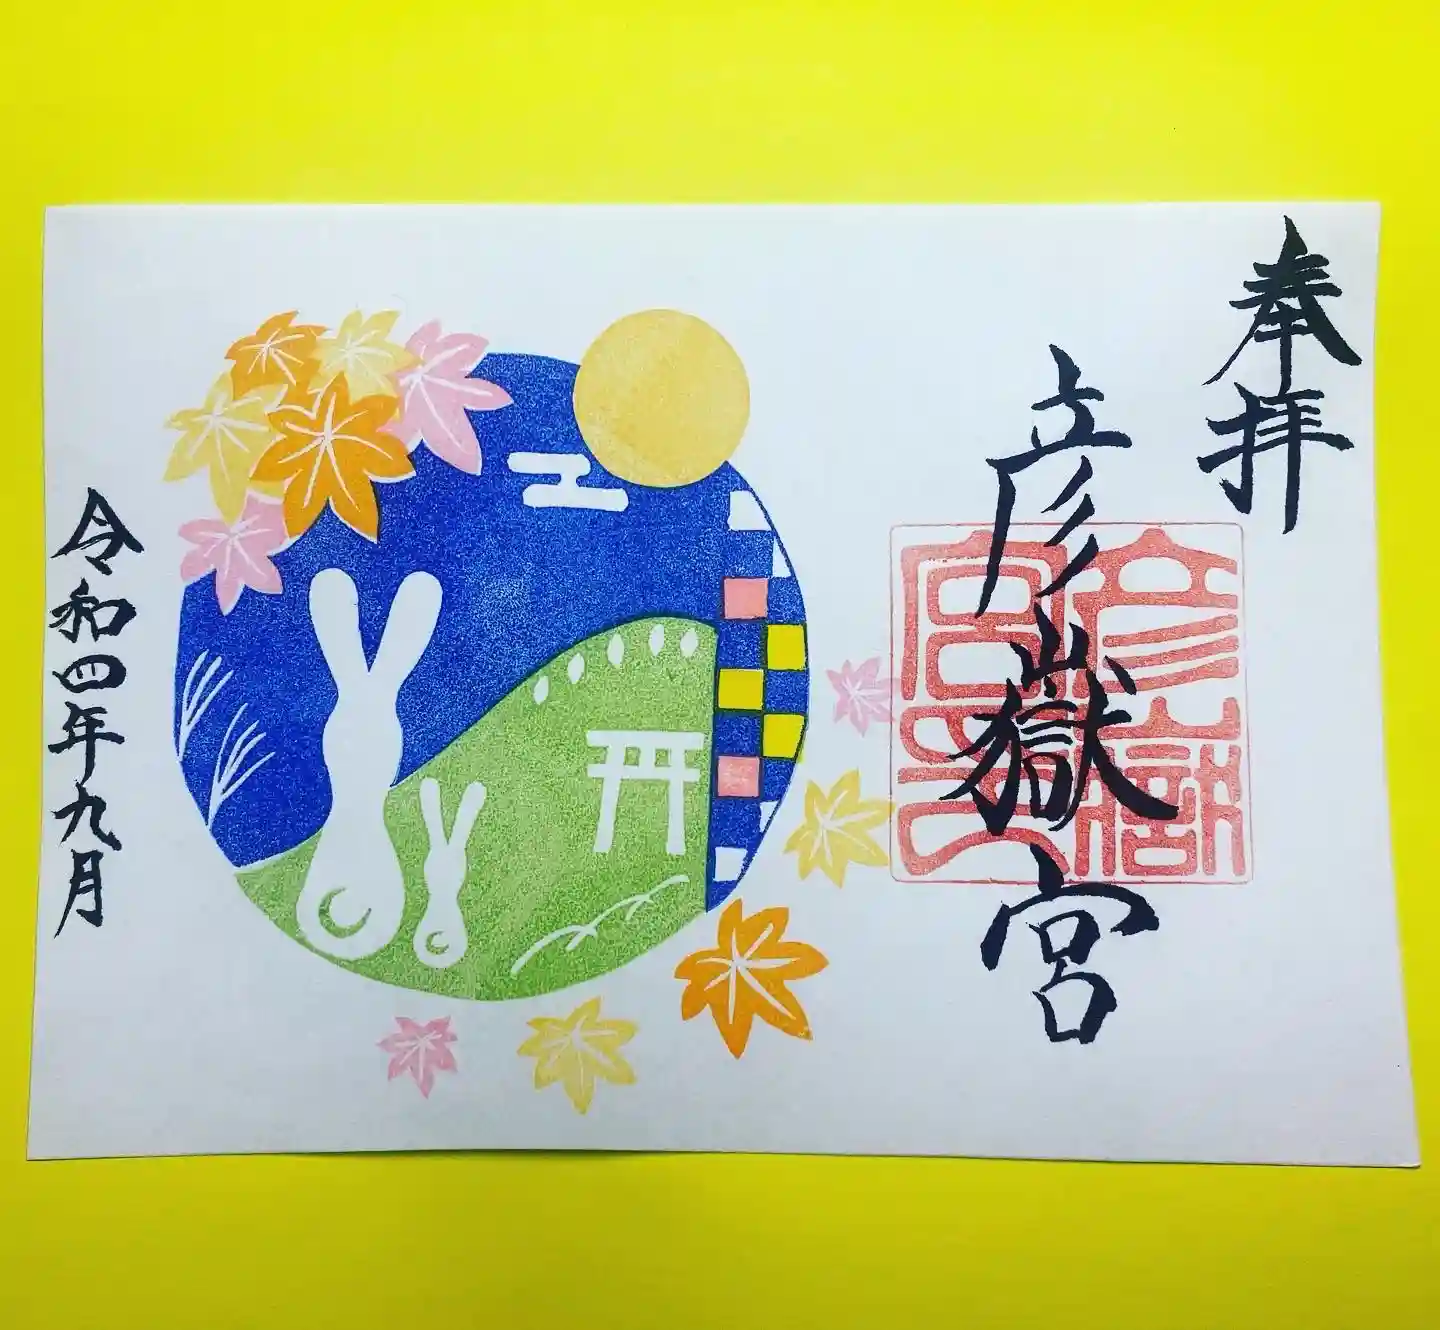 奉拝
彦嶽宮
彦嶽宮之
令和四年九月